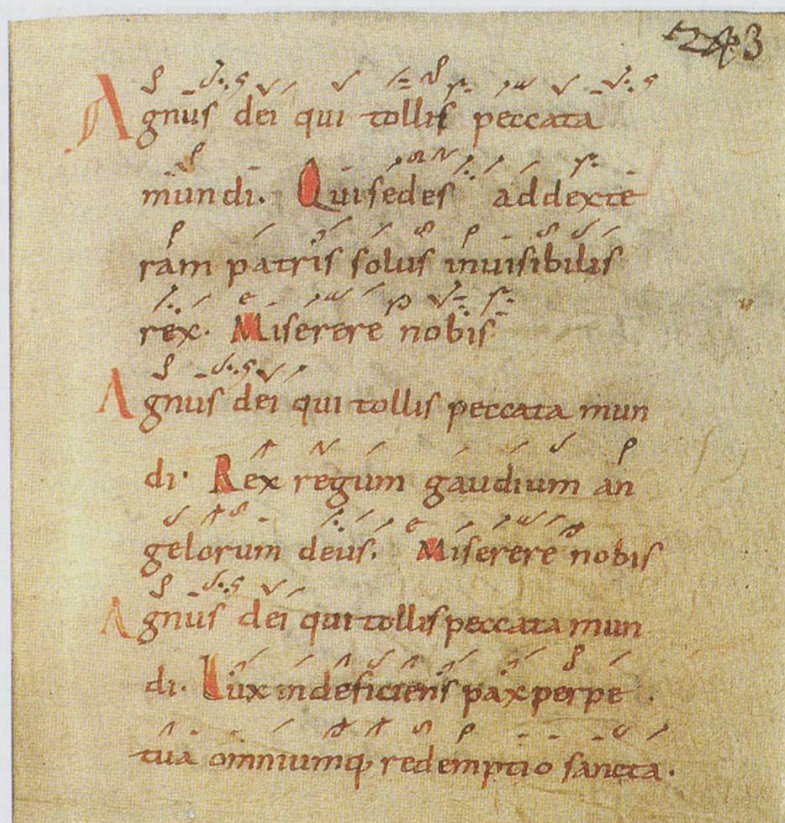 243
Agnus dei qui tollis peccata
mundi. Qui sedes ad dexte
ram patris solus inuisibilis
rex. Miserere nobis
Agnus dei qui tollis peccata mun
di. Rex regum gaudium an
gelorum deus. Miserere nobis
Agnus dei qui tollis peccata mun
di. Lux indeficiens pax perpe
tua omniumq; redemptio sancta.